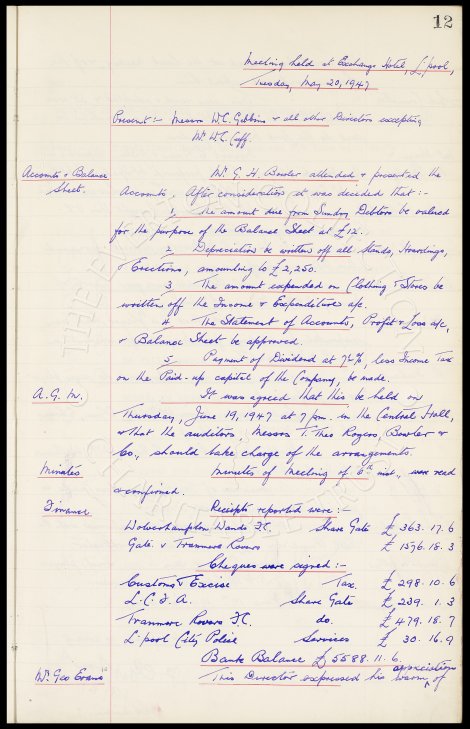 12
Meeting held at Exchange Hotel, L'pool,
Tuesday, May 20, 1947
Present :- Messrs W.C. Gibbins & all other Directors excepting
Mr W.C. Cuff.
Accounts & Balance Sheet.
Mr. G. H. Bowler attended & presented the
Accounts. After consideration it was decided that :-
1. The amount due from Sundry Debtors be valued
for the purpose of the Balance Sheet at £12.
2. Depreciation be written off all Stands, Hoardings,
& Erections, amounting to £2,250.
3. The amount expended on Clothing & Stores be
written off the Income & Expenditure a/c.
4. The Statement of Accounts, Profit & Loss a/c,
& Balance Sheet be approved.
5. Payment of Dividend at 7½%, less Income Tax
on the Paid-up capital of the Company, be made.
A.G.M.
It was agreed that this be held on
Thursday, June 19, 1947 at 7 p.m. in the Central Hall,
& that the auditors, Messrs T. Theo Rogers, Bowler &
Co., should take charge of the arrangements.
Minutes
Minutes of Meeting of 6th inst., were read
& confirmed.
Finance
Receipts reported were :-
Wolverhampton Wands F.C. Share Gate £ 363. 17. 6
Gate v Tranmere Rovers £ 1576. 18. 3
Cheques were signed :-
Customs & Excise Tax £ 298. 10. 6
L.C.F.A. Share Gate £ 239. 1. 3
Tranmere Rovers F.C. do. £ 479. 18. 7
L'pool City Police Services £ 30. 16. 9
Bank Balance £5588. 11. 6.
Mr. Geo Evans
This Director expressed his warm appreciation of